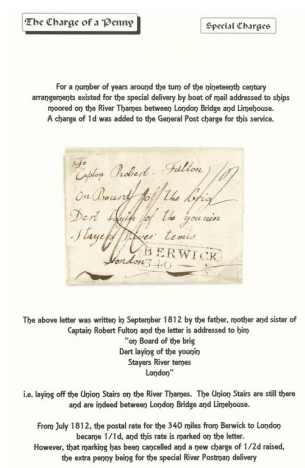 The Charge of a Penny
Special Charges
For a number of years around the turn of the nineteenth century
arrangements existed for the special delivery by boat of mail addressed to ships
moored on the River Thames between London Bridge and Limehouse.
A charge of 1d was added to the General Post charge for this service.
To
Captn Robert Fulton
on Bourd of the brig
Dert layin of the younin
Stayers river temes
London
BERWICK
340
The above letter was written in September 1812 by the father, mother and sister of
Captain Robert Fulton and the letter is addressed to him
"on Board of the brig
Dert laying of the younin
Stayers River temes
London"
i.e. laying off the Union Stairs on the River Thames. The Union Stairs are still there
and are indeed between London Bridge and Limehouse.
From July 1812, the postal rate for the 340 miles from Berwick to London
became 1/1d, and this rate is marked on the letter.
However, that marking has been cancelled and a new charge of 1/2d raised,
the extra penny being for the special River Postman delivery